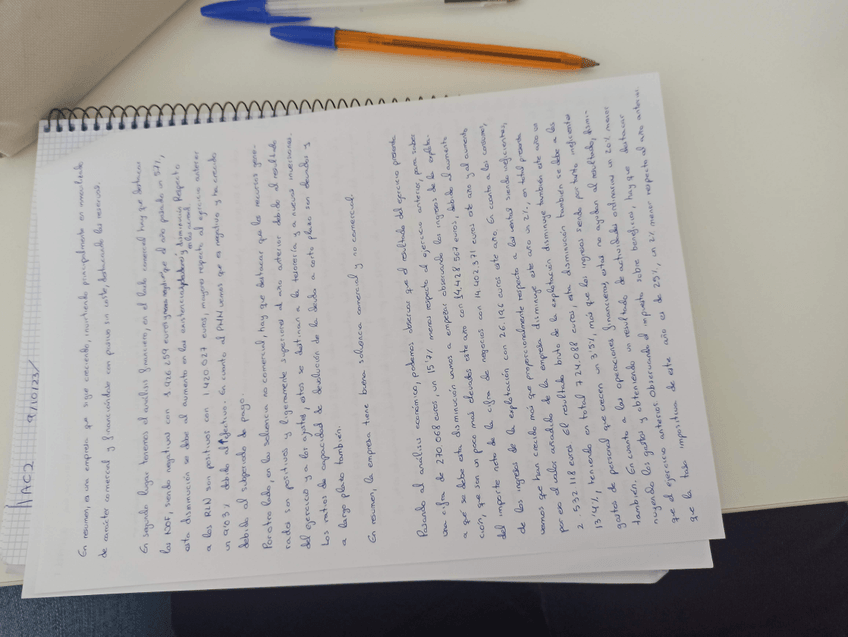 MAC2 9/10/23/
En resumen, es una empresa que sigue creciendo, invirtiendo principalmente en inmovilizado
de carácter comercial y financiándolo con pasivo sin coste, destacando las reservas.
En segundo lugar tenemos el análisis financiero, en el lado comercial hay que destacar
las NOF, siendo negativas con 1 916 659 euros y son mejores que el año pasado un 57%,
esta disminución se debe al aumento en las existencias
a los RLN son positivos con 1 420 027 euros, mayores respecto al ejercicio anterior
un 983% debido al efectivo. En cuanto al RNN vemos que es negativo y ha crecido
debido al subperiodo de pago.
Por otro lado, en la solvencia no comercial, hay que destacar que los recursos gene-
rados son positivos y ligeramente superiores al año anterior debido al resultado
del ejercicio y a los ajustes, estos se destinan a la tesorería y a nuevas inversiones.
Los ratios de capacidad de devolución de la deuda a corto plazo son elevados y
a largo plazo también.
En resumen, la empresa tiene buena solvencia comercial y no comercial.
Pasando al análisis económico, podemos observar que el resultado del ejercicio presenta
una cifra de 270.068 euros, un 15'7% menos respecto al ejercicio anterior, para saber
a que se debe esta disminución vamos a empezar observando los ingresos de la explota-
ción, que son un poco mas elevados este año con 14.428.567 euros, debido al aumento
del importe neto de la cifra de negocios con 14.402.371 euros este año y al aumento
de los ingresos de la explotación con 26.196 euros este año. En cuanto a los consumos,
vemos que han crecido más que proporcionalmente respecto a las ventas siendo ineficientes,
por eso el valor añadido de la empresa disminuye este año un 2%, en total presenta
2 532 118 euros. El resultado bruto de la explotación disminuye también este año un
13'4%, teniendo en total 724.088 euros, esta disminución también se debe a los
gastos de personal que crecen un 3'5%, más que los ingresos siendo por tanto ineficientes
también. En cuanto a las operaciones financieras estas no ayudan al resultado, dismi-
nuyendo los gastos y obteniendo un resultado de actividades ordinarias un 20% menor
que el ejercicio anterior. Observando el impuesto sobre beneficios, hay que destacar
que la tasa impositiva de este año es de 25%, un 2% menor respecto al año anterior.